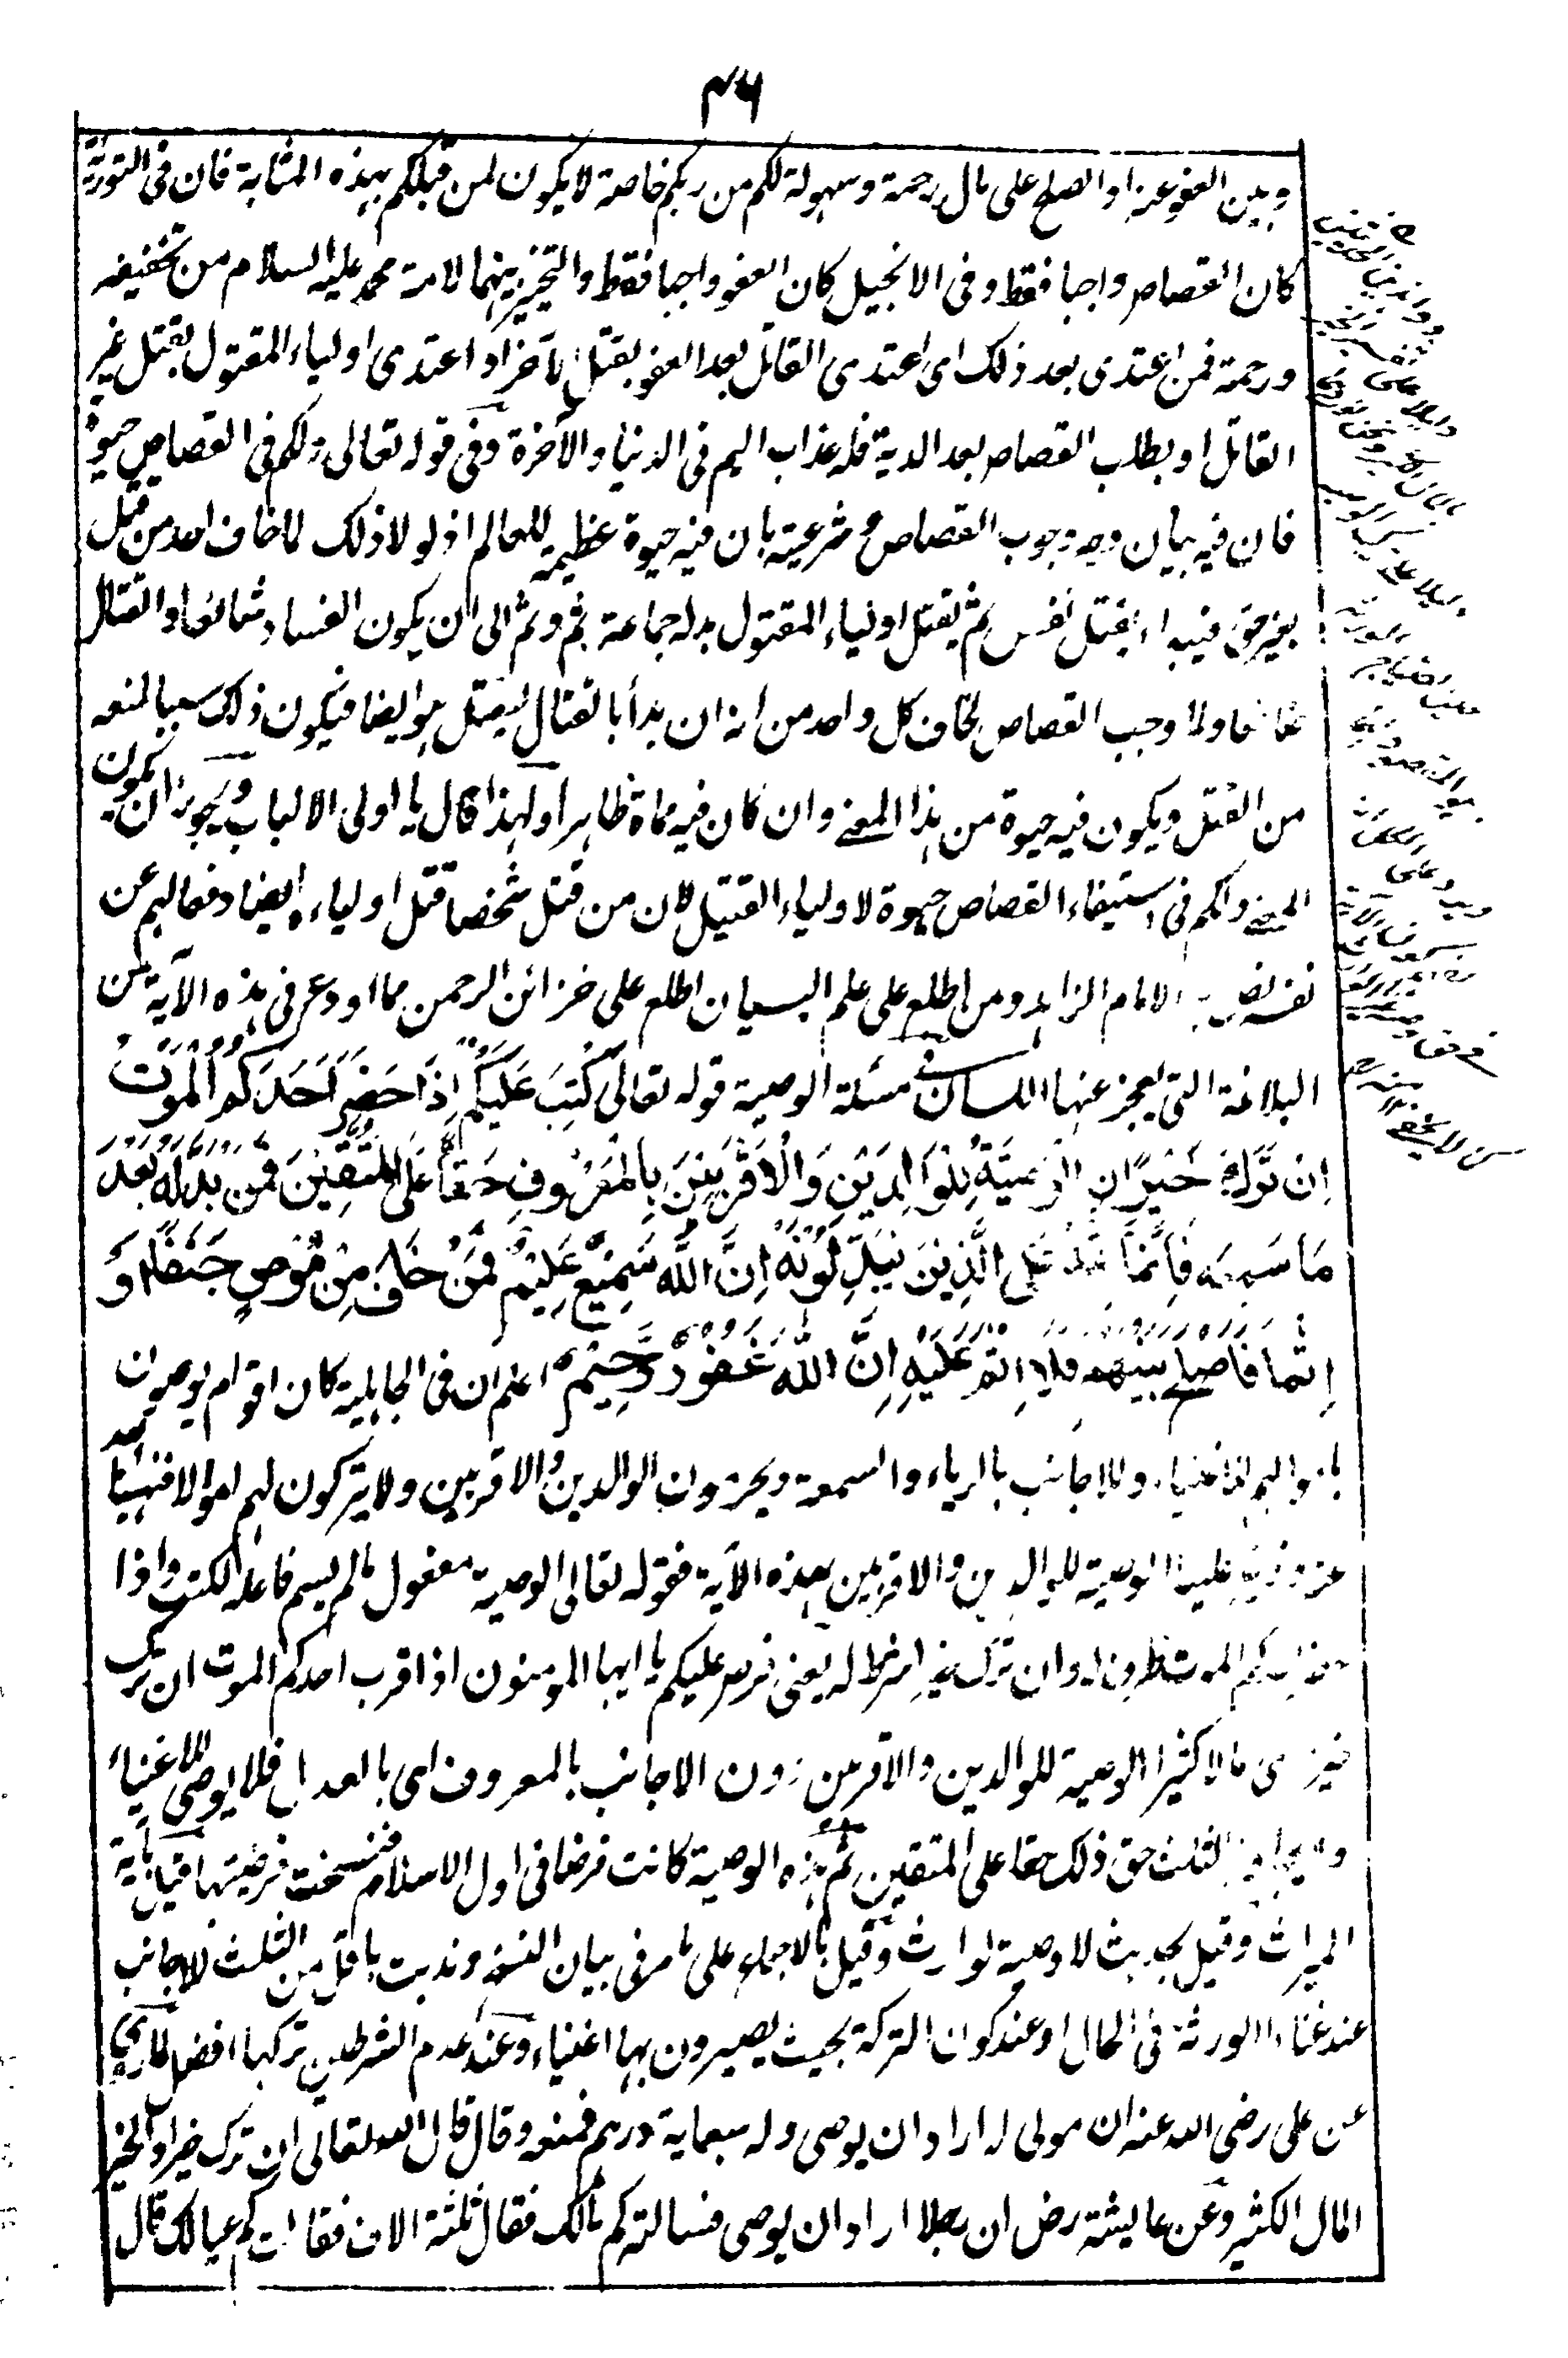 ٤٦
وبين العفو عنه او الصلح على مال رحمة وسهولة لكم من ربكم خاصة لا يكون لمن قبلكم بهذه المثابة فان فى التورية
كان القصاص واجبا فقط وفى الانجيل كان العفو واجبا فقط والتخير بينهما لامة محمد عليه السلام من تخفيفه
ورحمة فمن اعتدى بعد ذلك اى اعتدى القاتل بعد العفو بقتل الآخر او اعتدى اولياء المقتول بقتل غير
القاتل او بطلب القصاص بعد الدية فله عذاب اليم فى الدنيا والآخرة وفى قوله تعالى ولكم فى القصاص حيوة
فان فيه بيان وجه وجوب القصاص و شرعيته بان فيه حيوة عظيمة للعالم اذ لولا ذلك لما خاف احد من قتل
بغير حق فيبدا بقتل نفس ثم يقتل اولياء المقتول بدله جماعة ثم وثم الى ان يكون الفساد شائعا والقتال
شائعا ولما وجب القصاص لخاف كل واحد من انه ان بدأ بالقتال ليقتل هو ايضا فيكون ذلك سببا لمنعه
من القتل ويكون فيه حيوة من هذا المعنے وان كان فيه مماة ظاهرا ولهذا قال يا اولى الالباب ويجوز ان يكون
المعنے ولكم فى استيفاء القصاص حيوة لاولياء القتيل لان من قتل شخصا قتل اولياءه ايضا دفعا لهم عن
نفسه نص به الامام الزاهد ومن اطلع على علم البيان اطلع على خزائن الرحمن مما اودع فى هذه الآية من
البلاغة التى يعجز عنها اللسان فى مسئلة الوصية قوله تعالى كُتِبَ عَلَيْكُمْ إِذَا حَضَرَ أَحَدَكُمُ الْمَوْتُ
إِنْ تَرَكَ خَيْرًا نِ الْوَصِيَّةُ لِلْوَالِدَيْنِ وَالْأَقْرَبِينَ بِالْمَعْرُوفِ حَقًّا عَلَى الْمُتَّقِينَ فَمَنْ بَدَّلَهُ بَعْدَ
مَا سَمِعَهُ فَإِنَّمَا إِثْمُهُ عَلَى الَّذِينَ يُبَدِّلُونَهُ إِنَّ اللَّهَ سَمِيعٌ عَلِيمٌ فَمَنْ خَافَ مِنْ مُوصٍ جَنَفًا أَوْ
إِثْمًا فَأَصْلَحَ بَيْنَهُمْ فَلَا إِثْمَ عَلَيْهِ إِنَّ اللَّهَ غَفُورٌ رَحِيمٌ اعلم ان فى الجاهلية كان اقوام يوصون
باموالهم للاغنياء وللاجانب بالرياء والسمعة ويحرمون الوالدين والاقربين ولا يتركون لهم اموالا فنهى الله
عنه وفرض علينا الوصية للوالدين والاقربين بهذه الآية فقوله تعالى الوصية مفعول مالم يسم فاعله لكتب واذا
حضر احدكم الموت ظرف له وان ترك خيرا شرط له يعنى فرض عليكم يا ايها المومنون اذا قرب احدكم الموت ان ترك
خيرا اى مالا كثيرا الوصية للوالدين والاقربين دون الاجانب بالمعروف اى بالعدل فلا يوصى للاغنياء
ولا يجاوز الثلث حق ذلك حقا على المتقين ثم هذه الوصية كانت فرضا فى اول الاسلام فنسخت فرضيتها قيل بآية
الميراث وقيل بحديث لا وصية لوارث وقيل بالاجماع على ما مر فى بيان النسخ وندبت باقل من الثلث للاجانب
عند غناء الورثة فى الحال او عند كون التركة بحيث يصيرون بها اغنياء وعند عدم الشرطين تركها افضل لما روى
عن على رضى الله عنه ان مولى له اراد ان يوصى وله سبعماية درهم فمنعه وقال قال الله تعالى ان ترك خيرا والخير
المال الكثير وعن عايشة رض ان رجلا اراد ان يوصى فسالته كم مالك فقال ثلثة الاف فقالت كم عيالك قال